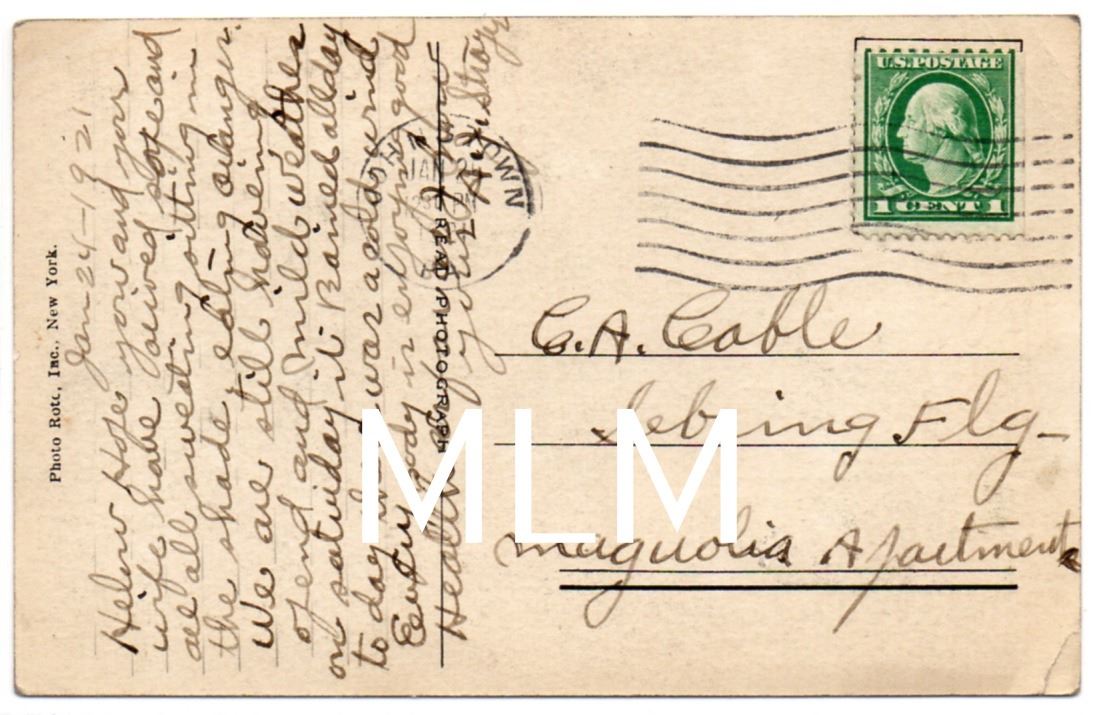 Photo Rott, Inc., New York.
Jan-24-1921
Hilow Hope you and your
wife have arived safe and
are all swedting sitting in
the shade eating oranges.
We are still haveing
open and mild weather
on satuiday it Rained all day
to day was a cold wind
Every body is enjoying good
Health
REAL PHOTOGRAPH
TOWN
JAN
U.S. POSTAGE
1 CENT 1
C. A. Cable
Sebring Flg-
Magnolia Apartments
MLM